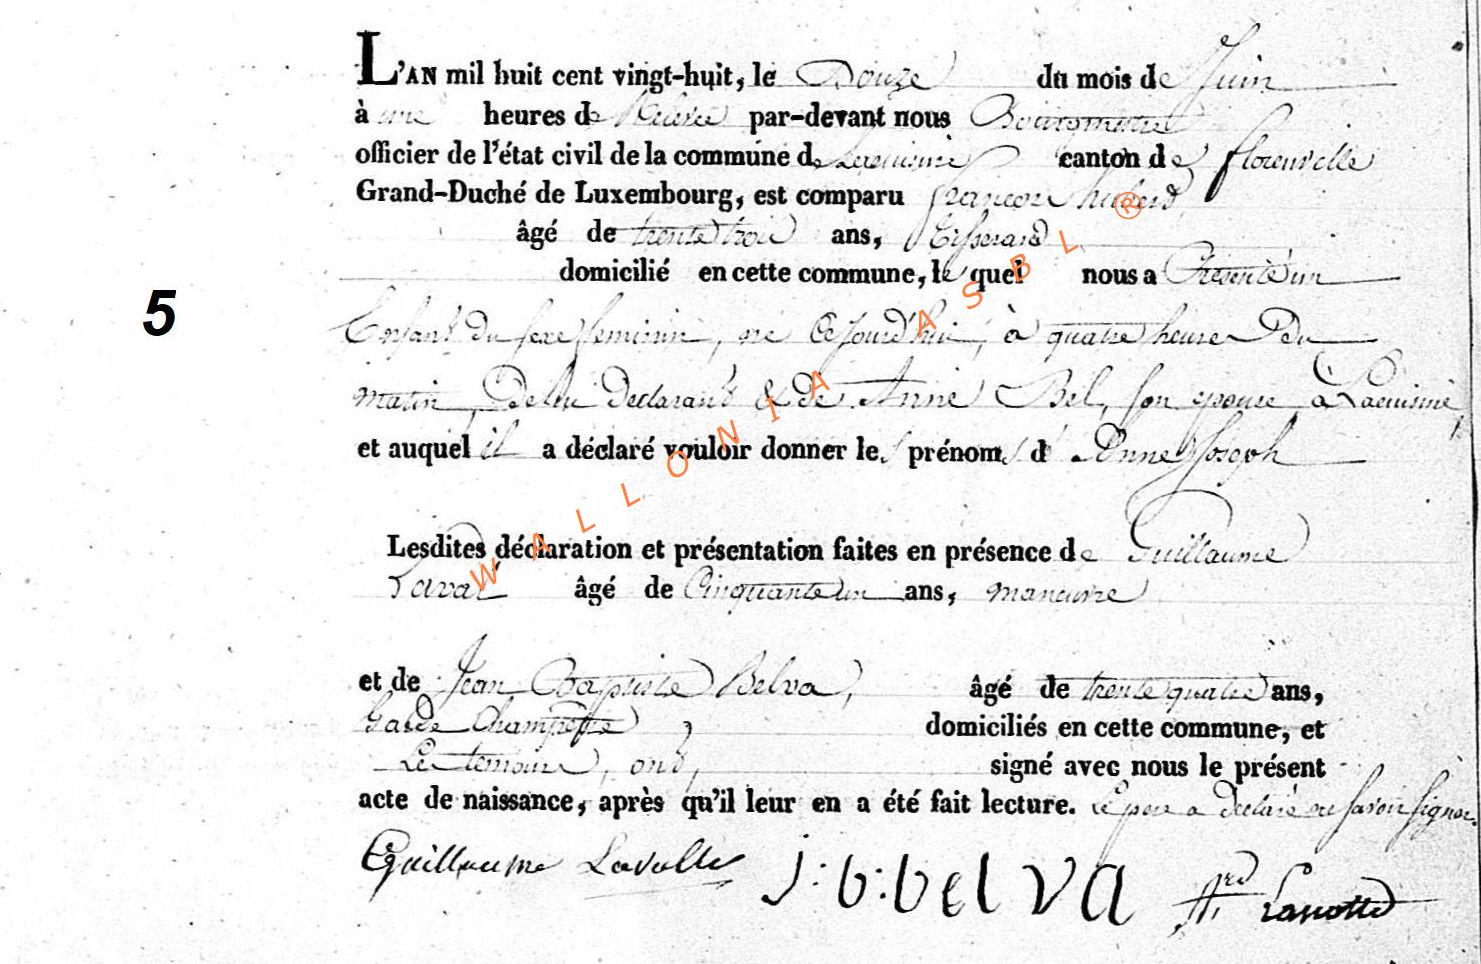 L'AN mil huit cent vingt-huit, le Douze du mois de Juin
à une heures de Relevée par-devant nous Bourgmestre
officier de l'état civil de la commune de Lacuisine canton de florenville
Grand-Duché de Luxembourg, est comparu françois huberd
âgé de trente trois ans, Tisserand
domicilié en cette commune, le quel nous a Présenté un
5
Enfant du sexe feminin, né Ce jourd'hui, à quatre heures Du
matin, De lui Declarant & de Anne Bel, son epouse à Lacuisine,
et auquel il a déclaré vouloir donner les prénoms d' Anne Joseph
Lesdites déclaration et présentation faites en présence de Guillaume
Laval âgé de Cinquante un ans, maneuvre
et de Jean Baptiste Belva, âgé de trente quatre ans,
Garde Champetre, domiciliés en cette commune, et
Les temoins, ont, signé avec nous le présent
acte de naissance, après qu'il leur en a été fait lecture. Le pere a declaré ne savoir signer.
Guillaume j:b:belva
WALLONIA ASBL ®